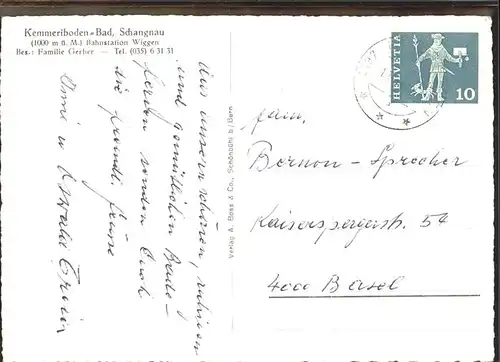 Kemmeriboden-Bad, Schangnau
(1000 m ü. M.) Bahnstation Wiggen
Bes.: Familie Gerber — Tel. (035) 6 31 31
Aus unsern schönen, ruhigen
und gemütlichen Bade-
ferien senden Euch
die freundl. Grüsse
Oswald
Verlag A. Boss & Co., Schönbühl b/Bern
HELVETIA
10
Fam.
Bernon - Sprecher
Kaiserspergerstr. 54
4000 Basel